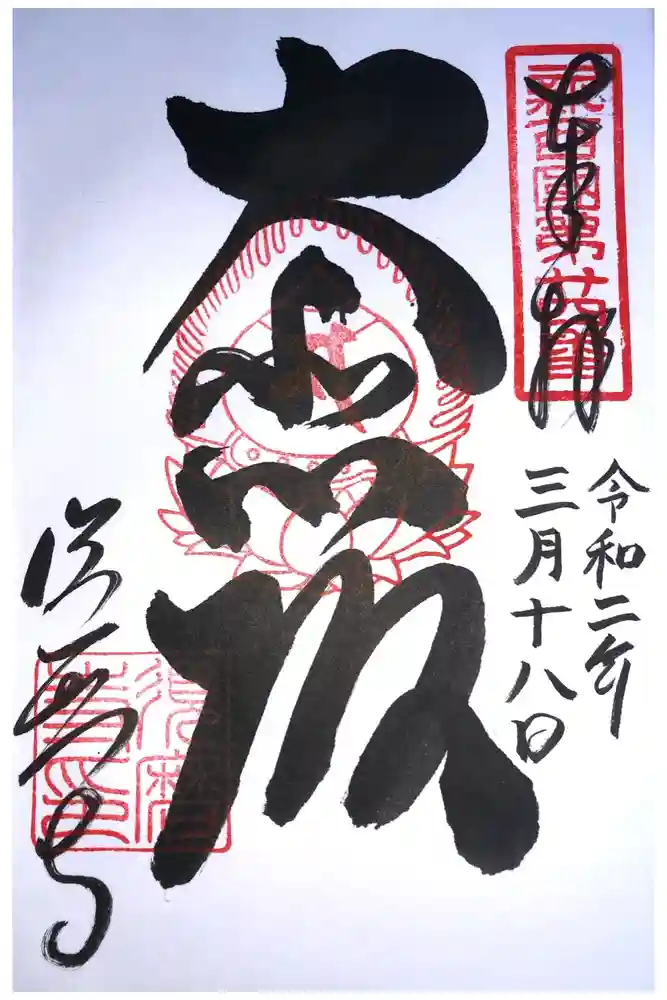 奉拝
令和二年
三月十八日
大悲殿
須磨寺